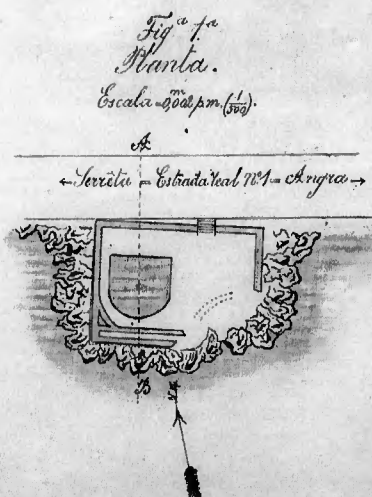 Fig.ª 1.ª
Planta.
Escala = 0,002 p.m. (1/500).
A
← Serrêta = Estrada Real Nº 1 = Angra →
B